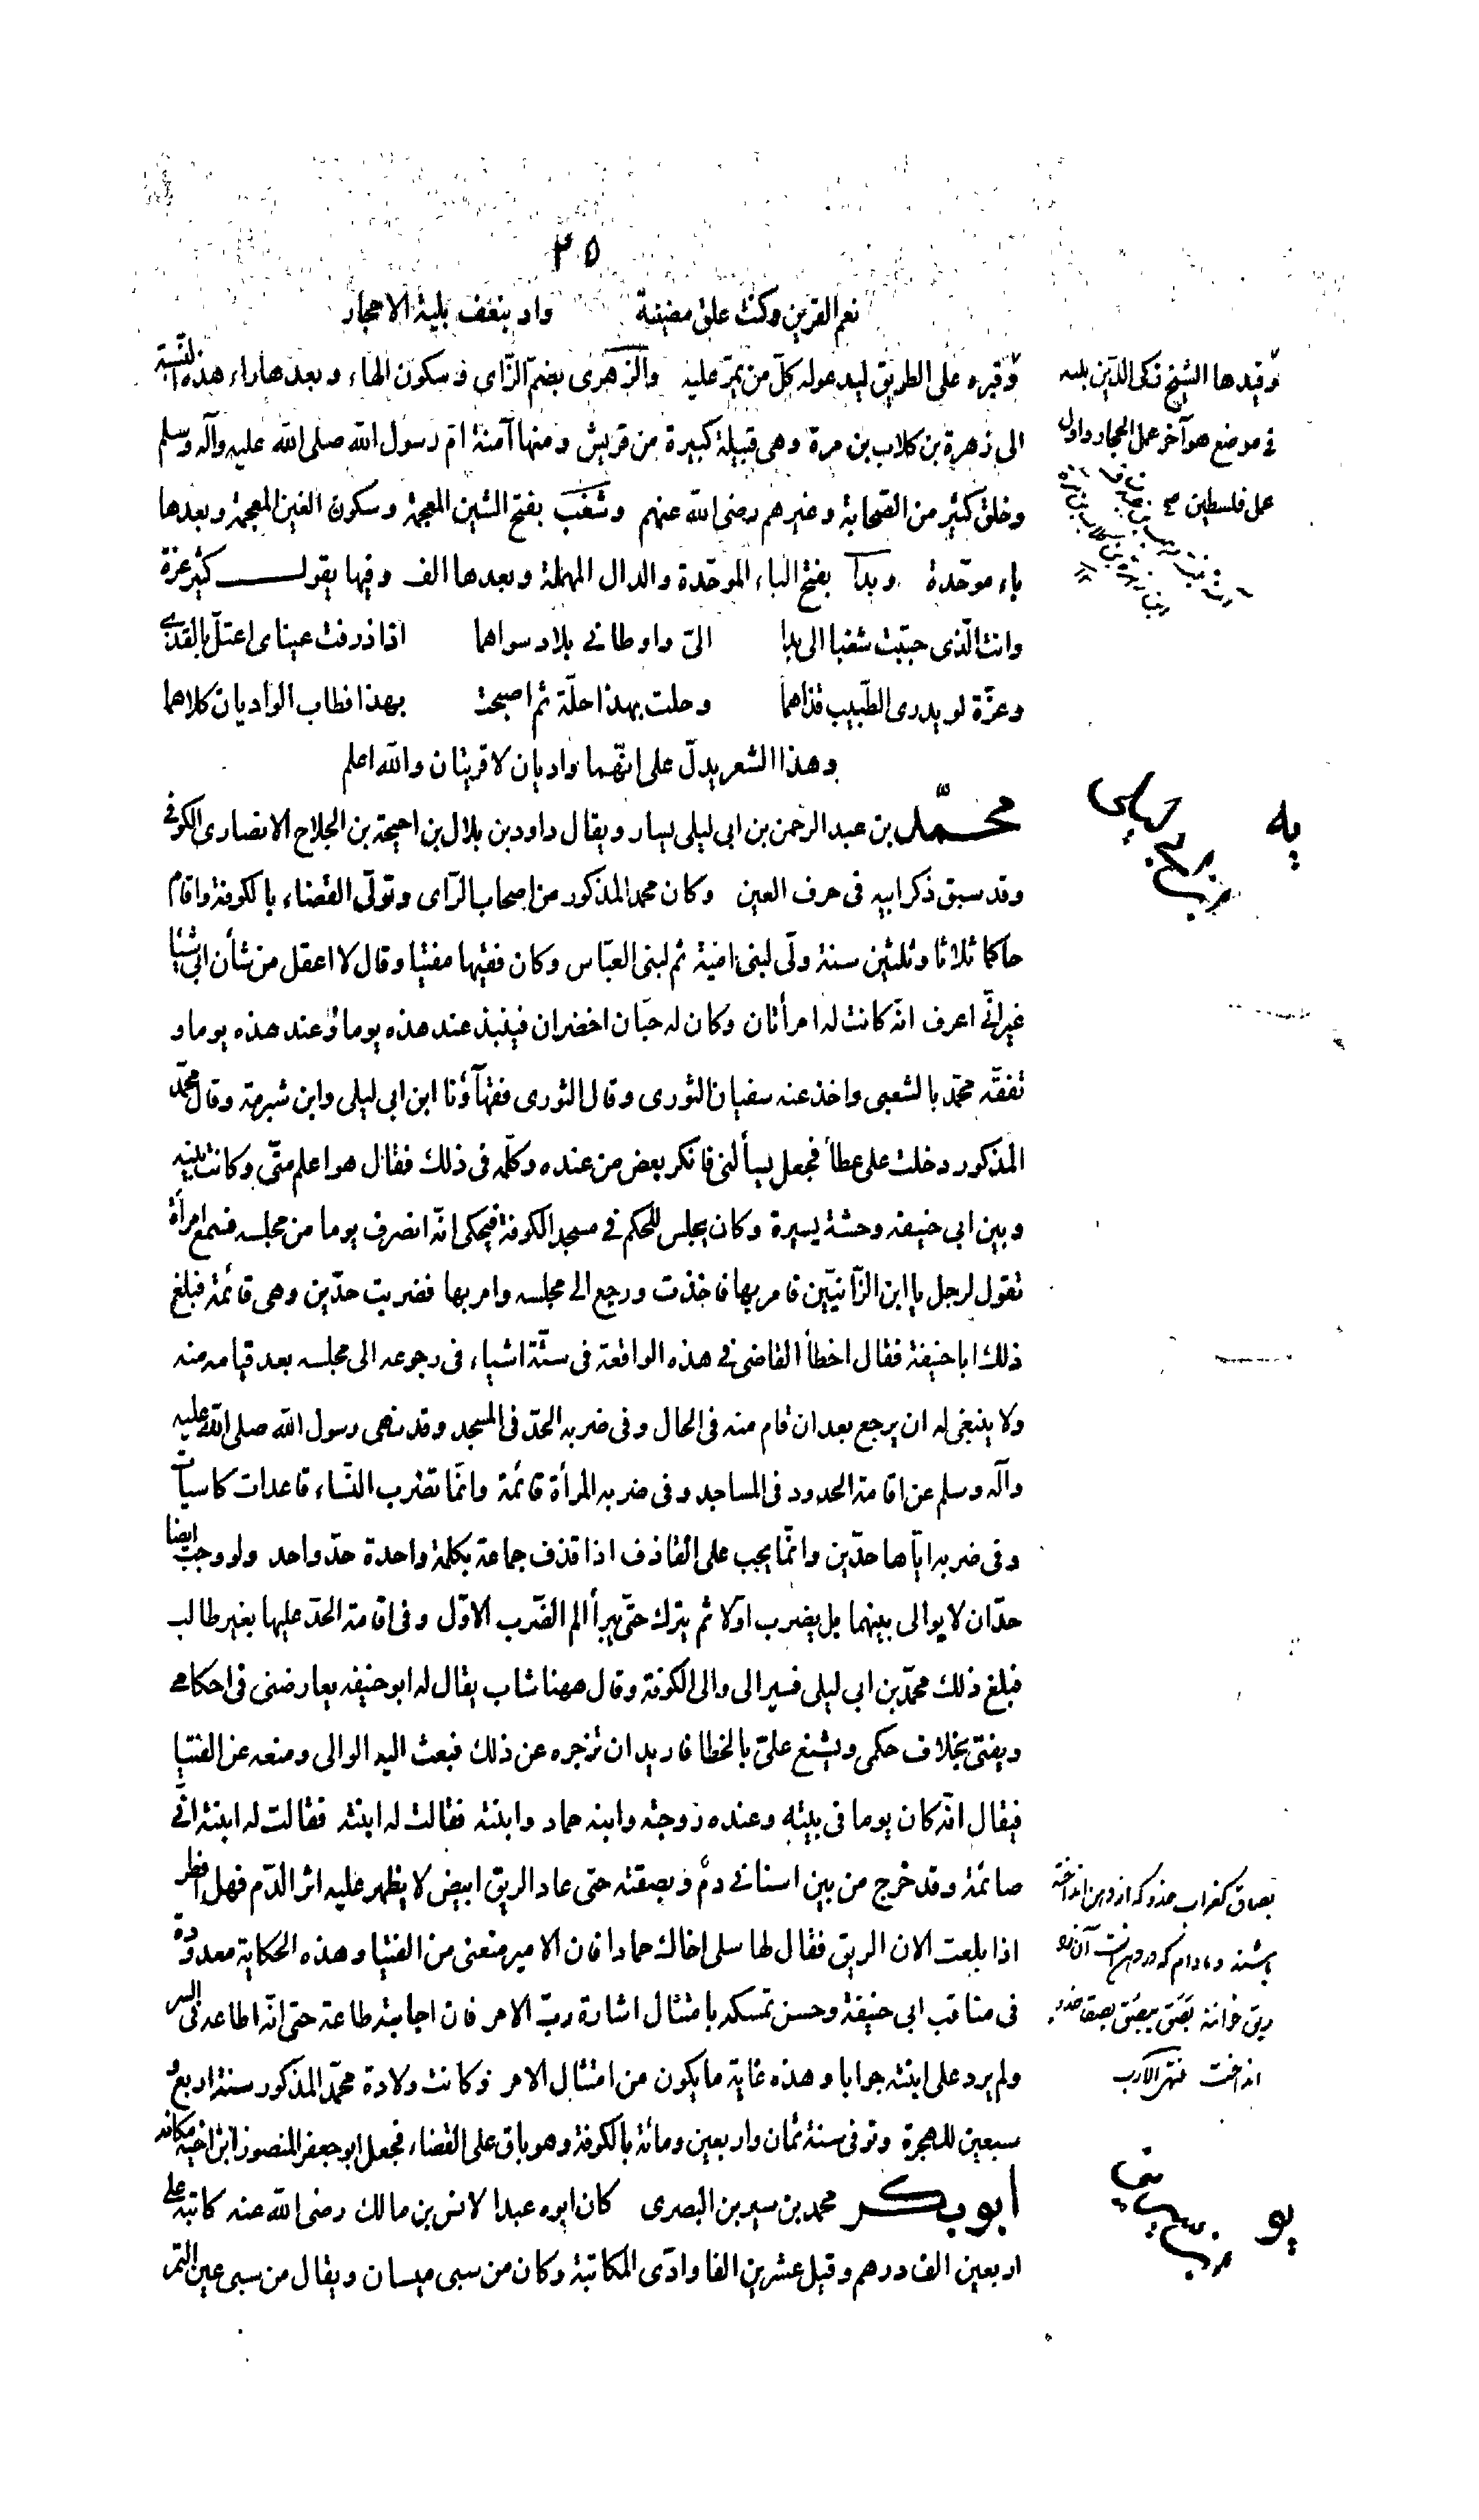 ٣٥
نعم القرين وكنت علق مضنية واد بنعف بلية الاحجار
وقبره على الطريق ليدعو له كلّ من يمرّ عليه والزهرى بضمّ الزّاى وسكون الهاء وبعدها راء هذه النسبة
الى زهرة بن كلاب بن مرة وهى قبيلة كبيرة من قريش ومنها آمنة امّ رسول الله صلى الله عليه وآله وسلم
وخلق كثير من الصّحابة وغيرهم رضى الله عنهم وشغب بفتح الشين المعجمة وسكون الغين المعجمة وبعدها
باء موحّدة وبدا بفتح الباء الموحّدة والدال المهملة وبعدها الف وفيها يقول كثير عزة
وانت الّذى حبّبت شغبا الى بدا الىّ واوطانى بلاد سواهما اذا ذرفت عيناى اعتلّ بالقذى
وعزّة لو يدرى الطّبيب قذاهما وحلت بهذا حلّة ثم اصبحت بهذا فطاب الواديان كلاهما
وهذا الشعر يدلّ على انّهما واديان لا قريتان والله اعلم
محمّد بن عبد الرحمن بن ابى ليلى يسار ويقال داود بن بلال بن احيحة بن الجلاح الانصارى الكوفى
وقد سبق ذكر ابيه فى حرف العين وكان محمد المذكور من اصحاب الرّاى وتولّى القضاء بالكوفة واقام
حاكما ثلاثا وثلثين سنة ولّى لبنى امية ثم لبنى العبّاس وكان فقيها مفتيا وقال لا اعقل من شأن ابى شيئا
غير انّى اعرف انّه كانت له امرأتان وكان له حبّان اخضران فينبذ عند هذه يوما وعند هذه يوما و
تفقّه محمّد بالشعبى واخذ عنه سفيان الثورى وقال الثورى فقهآؤنا ابن ابى ليلى وابن شبرمة وقال محمّد
المذكور دخلت على عطأ فجعل يسألنى فانكر بعض من عنده وكلّمه فى ذلك فقال هو اعلم منّى وكانت بينه
وبين ابى حنيفه وحشة يسيرة وكان يجلس للحكم فى مسجد الكوفة فيحكى انّه انصرف يوما من مجلسه فسمع امرأة
تقول لرجل يا ابن الزّانيّين فامر بها فاخذت ورجع الى مجلسه وامر بها فضربت حدّين وهى قائمة فبلغ
ذلك ابا حنيفة فقال اخطأ القاضى فى هذه الواقعة فى ستّة اشياء فى رجوعه الى مجلسه بعد قيامه منه
ولا ينبغى له ان يرجع بعد ان قام منه فى الحال وفى ضربه الحدّ فى المسجد وقد نهى رسول الله صلى الله عليه
وآله وسلم عن اقامة الحدود فى المساجد وفى ضربه المرأة قائمة وانّما تضرب النّساء قاعدات كاسيات
وفى ضربه ايّاها حدّين وانّما يجب على القاذف اذا قذف جماعة بكلمة واحدة حدّ واحد ولو وجب ايضا
حدّان لا يوالى بينهما بل يضرب اوّلا ثم يترك حتّى يبرأ الم الضّرب الاوّل وفى اقامة الحدّ عليها بغير طالب
فبلغ ذلك محمّد بن ابى ليلى فسير الى والى الكوفة وقال ههنا شاب يقال له ابو حنيفه يعارضنى فى احكامى
ويفتى بخلاف حكمى ويشنع علىّ بالخطا فاريد ان تزجره عن ذلك فبعث اليه الوالى ومنعه عن الفتيا
فيقال انّه كان يوما فى بيته وعنده زوجته وابنه حماد وابنته فقالت له ابنته فقالت له ابنته انّى
صائمة وقد خرج من بين اسنانى دم وبصقته حتى عاد الريق ابيض لا يظهر عليه اثر الدّم فهل افطر
اذا بلعت الان الريق فقال لها سلى اخاك حمادا فان الامير منعنى من الفتيا وهذه الحكاية معدودة
فى مناقب ابى حنيفة وحسن تمسكه بامتثال اشارة ربّ الامر فان اجابته طاعة حتى انّه اطاعه فى السر
ولم يرد على ابنته جوابا وهذه غاية ما يكون من امتثال الامر وكانت ولادة محمّد المذكور سنة اربع و
سبعين للهجرة وتوفى سنة ثمان واربعين ومائة بالكوفة وهو باق على القضاء فجعل ابو جعفر المنصور ابن اخيه مكانه
ابو بكر محمد بن سيرين البصرى كان ابوه عبدا لانس بن مالك رضى الله عنه كاتبه على
اربعين الف درهم وقيل عشرين الفا وادّى المكاتبة وكان من سبى ميسان ويقال من سبى عين التمر
وقيدها الشيخ زكى الدّين بليه
فى موضع هو آخر عمل الحجاز واول
عمل فلسطين صح
يه
ابن ابى ليلى
بصاق كغراب خدو كه از دهن انداخته
باشند و مادام كه در دهن است آن را
ريق خوانند بصق يبصق بصقا خدو
انداخت منتهى الارب
يو
ابن سيرين